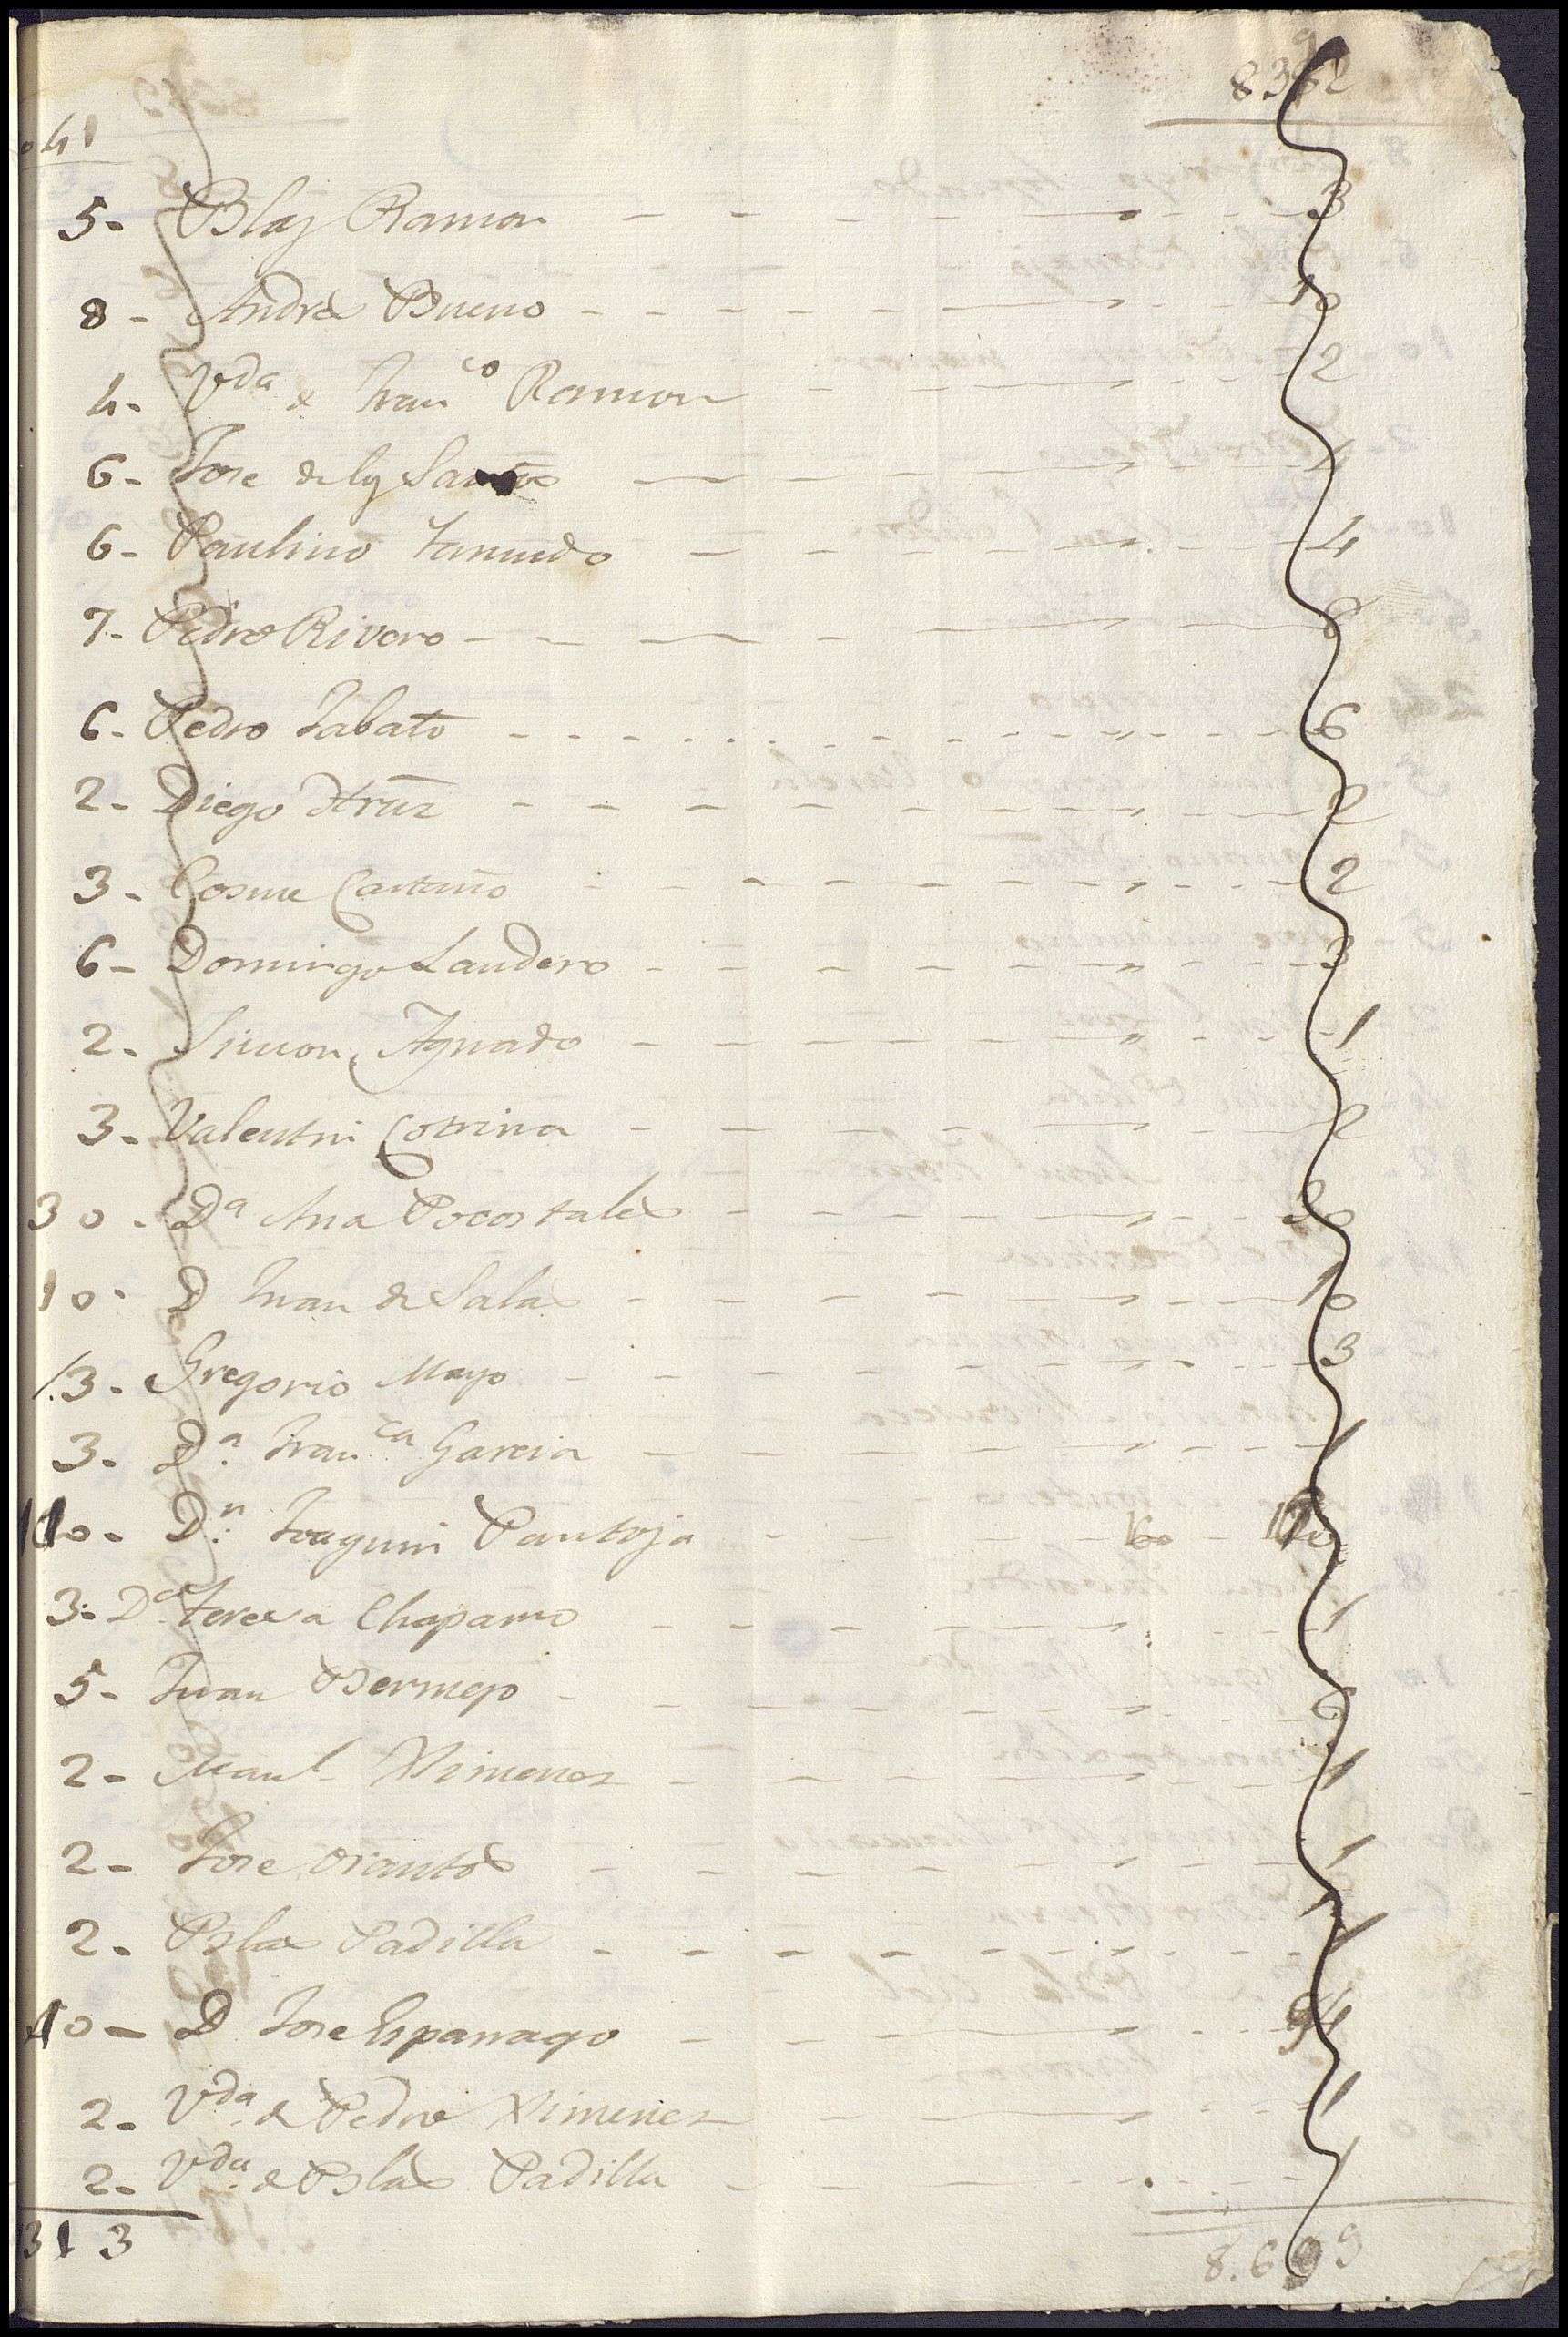 41
5- Blas Ramon - - - - 3
8- Andres Bueno - - - - 10
4- Vda de Franco Ramon - - - - 2
6- Jose de los Santos - - - - 4
6- Paulino - - - - 4
7- Pedro Rivero - - - - 8
6- Pedro Sabato - - - - 6
2- Diego Hrnz - - - - 2
3- Cosme Castaño - - - - 2
6- Domingo Landero - - - - 3
2- Simon Aguado - - - - 1
3- Valentin Cotrina - - - - 2
30- Da Ana Pocostales - - - - 30
10- D Juan de Salas - - - - 10
13- Gregorio Mayo - - - - 3
3- Da. Franca Garcia - - - - 1
Dn. Joaquin Pantoja - - - - 160
3- Da Teresa Chaparro - - - - 1
5- Juan Bermejo - - - - 6
2- Manl Ximenez - - - - 1
2- Jose - - - - 1
2- Blas Padilla - - - - 1
D Jose Esparrago - - - -
2- Vda de Pedro Ximenez - - - - 1
2- Vda de Blas Padilla - - - - 1
313